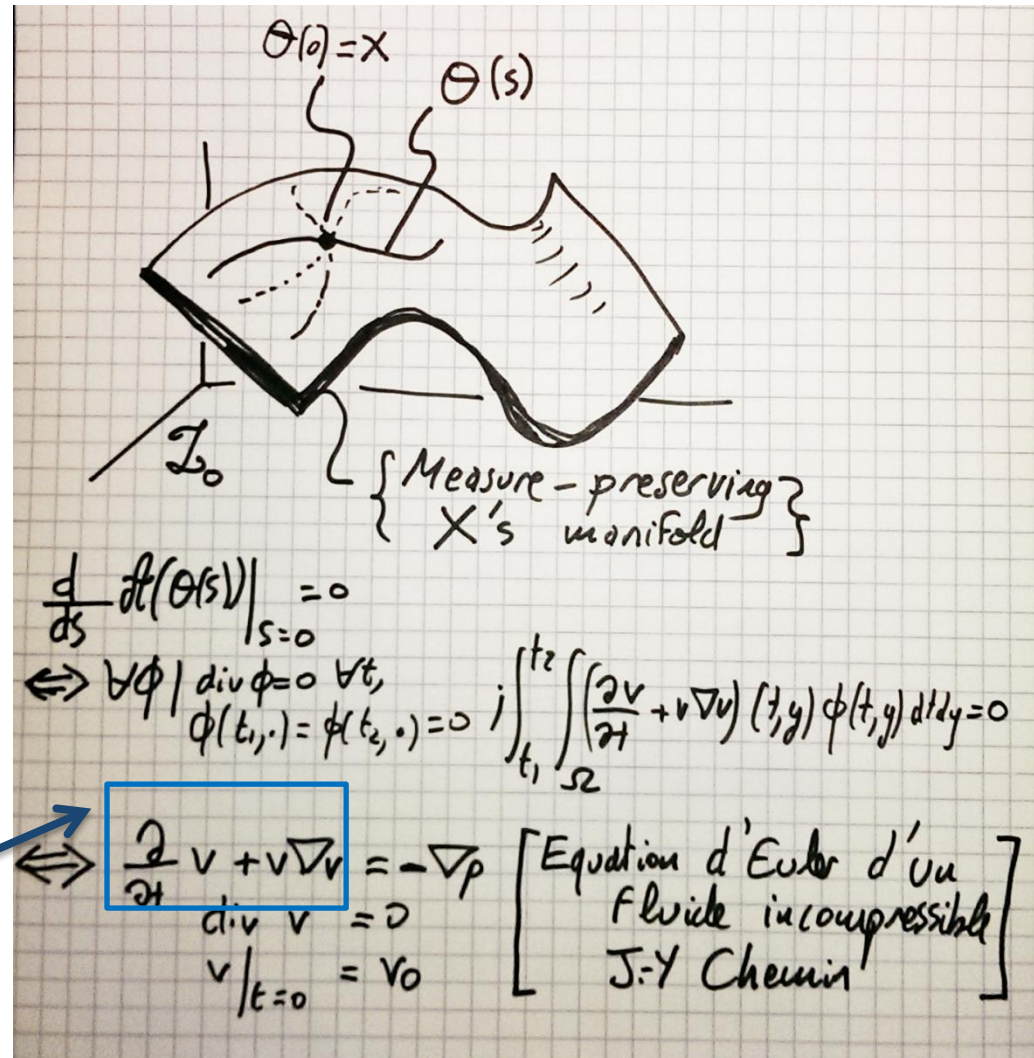 Θ(0)=X
Θ(s)
I₀
{ Measure-preserving }
{ X's manifold }
d/ds A(Θ(s))|s=0 =0
⇔ ∀ϕ | div ϕ=0 ∀t,
ϕ(t₁,·)=ϕ(t₂,·)=0 ; ∫t₁^t₂ ∫Ω (∂v/∂t + v∇v)(t,y) ϕ(t,y) dtdy=0
⇔ ∂/∂t v + v∇v = -∇p
div v = 0
v|t=0 = v₀
[Equation d'Euler d'un
fluide incompressible
J.-Y Chemin]